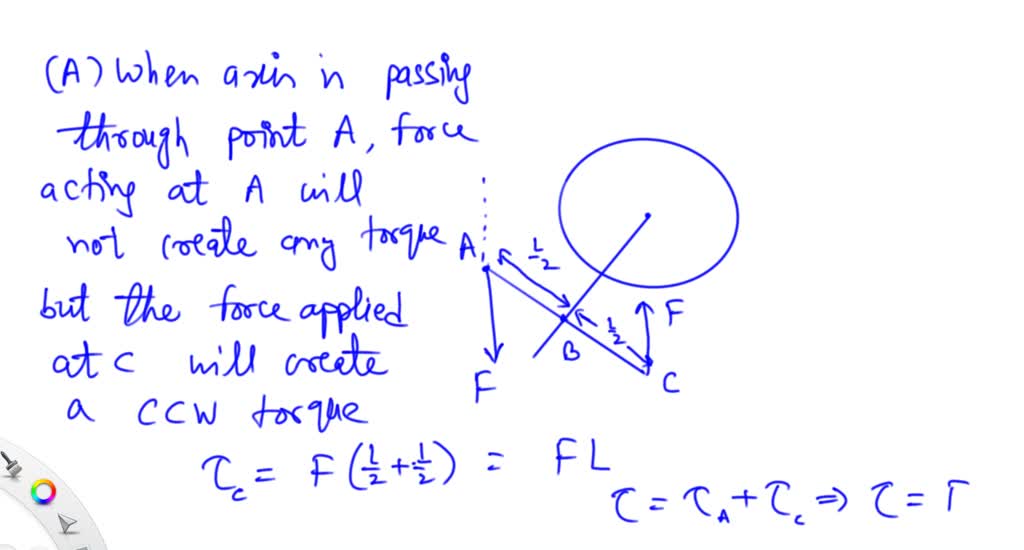 (A) When axis is passing
through point A, force
acting at A will
not create any torque
but the force applied
at C will create
a CCW torque
A
L/2
L/2
B
F
F
C
τ_c = F (L/2 + L/2) = FL
τ = τ_A + τ_c ⇒ τ =